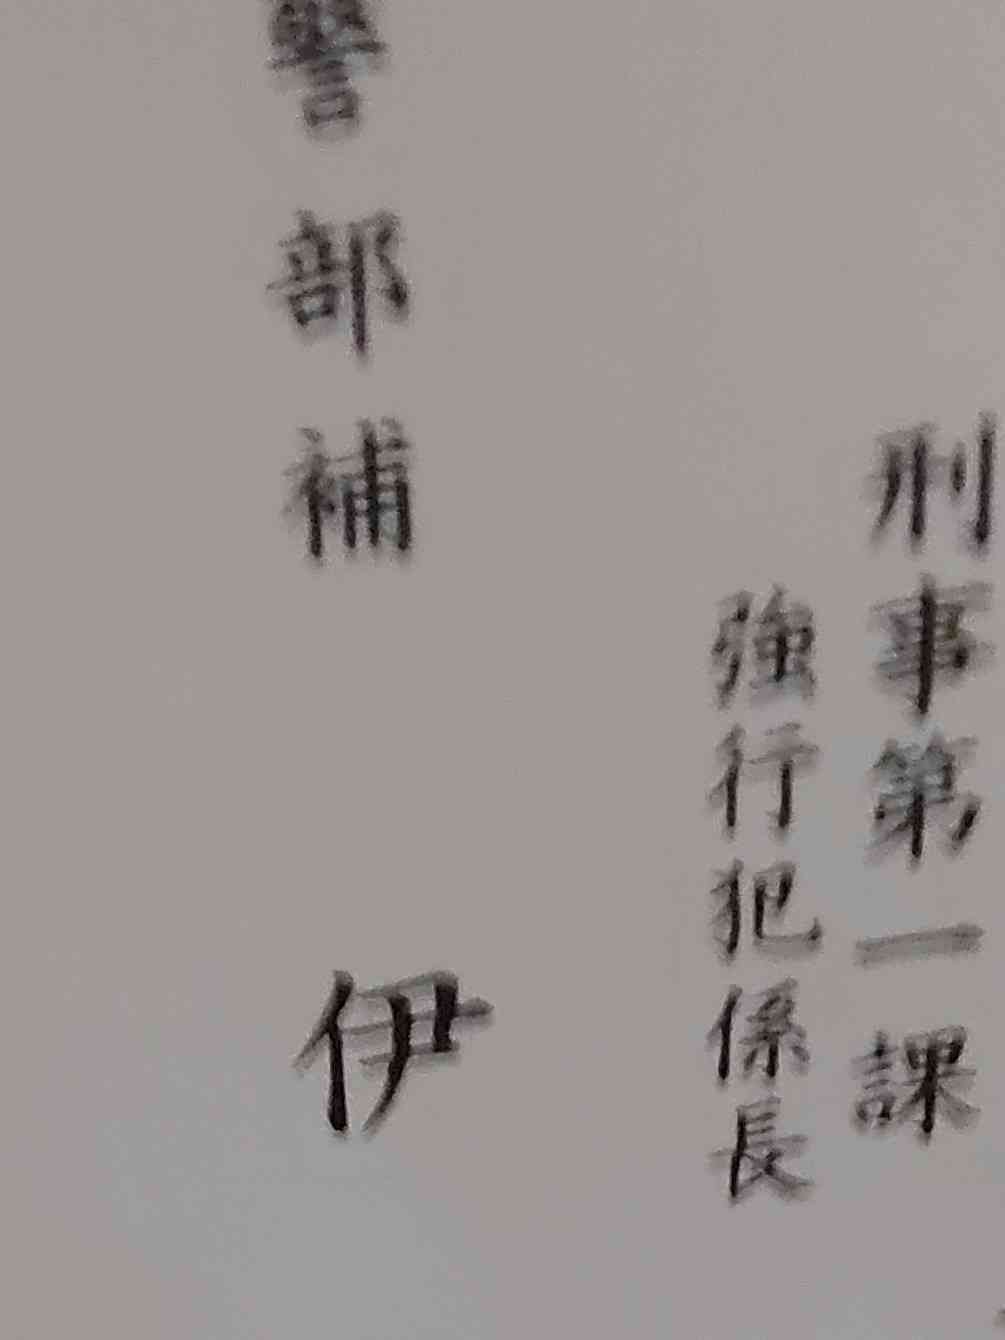 刑事第一課
強行犯係長
警部補 伊